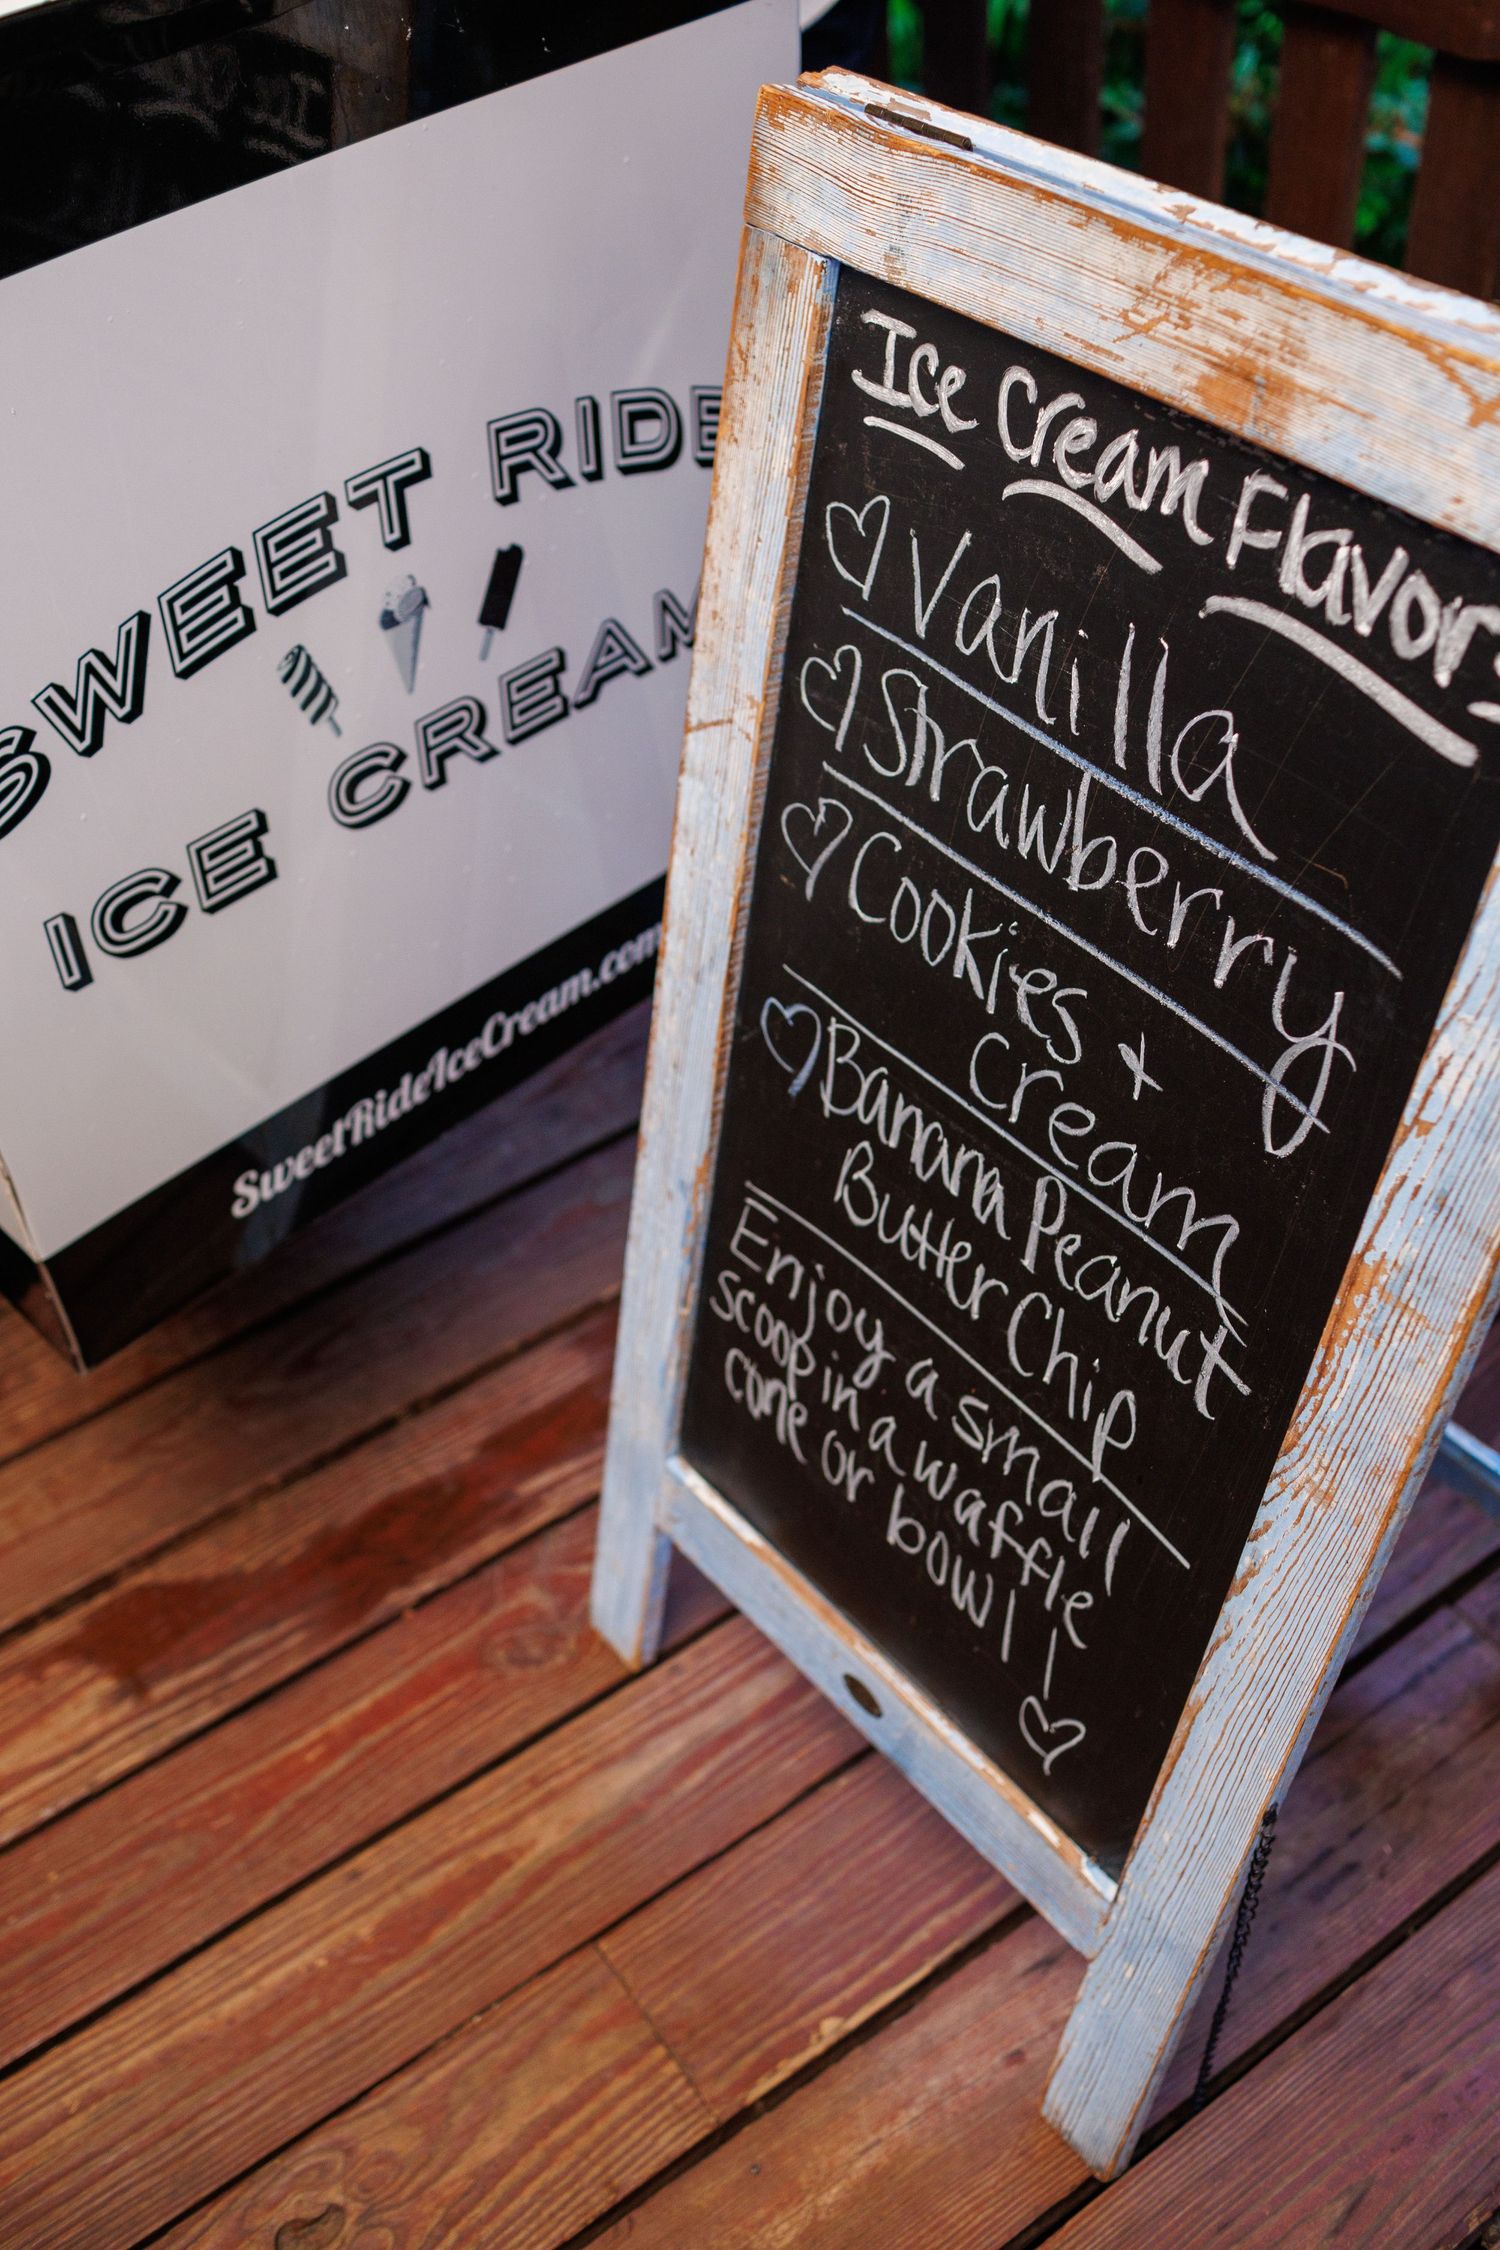 SWEET RIDE
ICE CREAM
SweetRideIceCream.com
Ice Cream Flavors
Vanilla
Strawberry
Cookies +
Cream
Banana Peanut
Butter Chip
Enjoy a small
scoop in a waffle
cone or bowl!